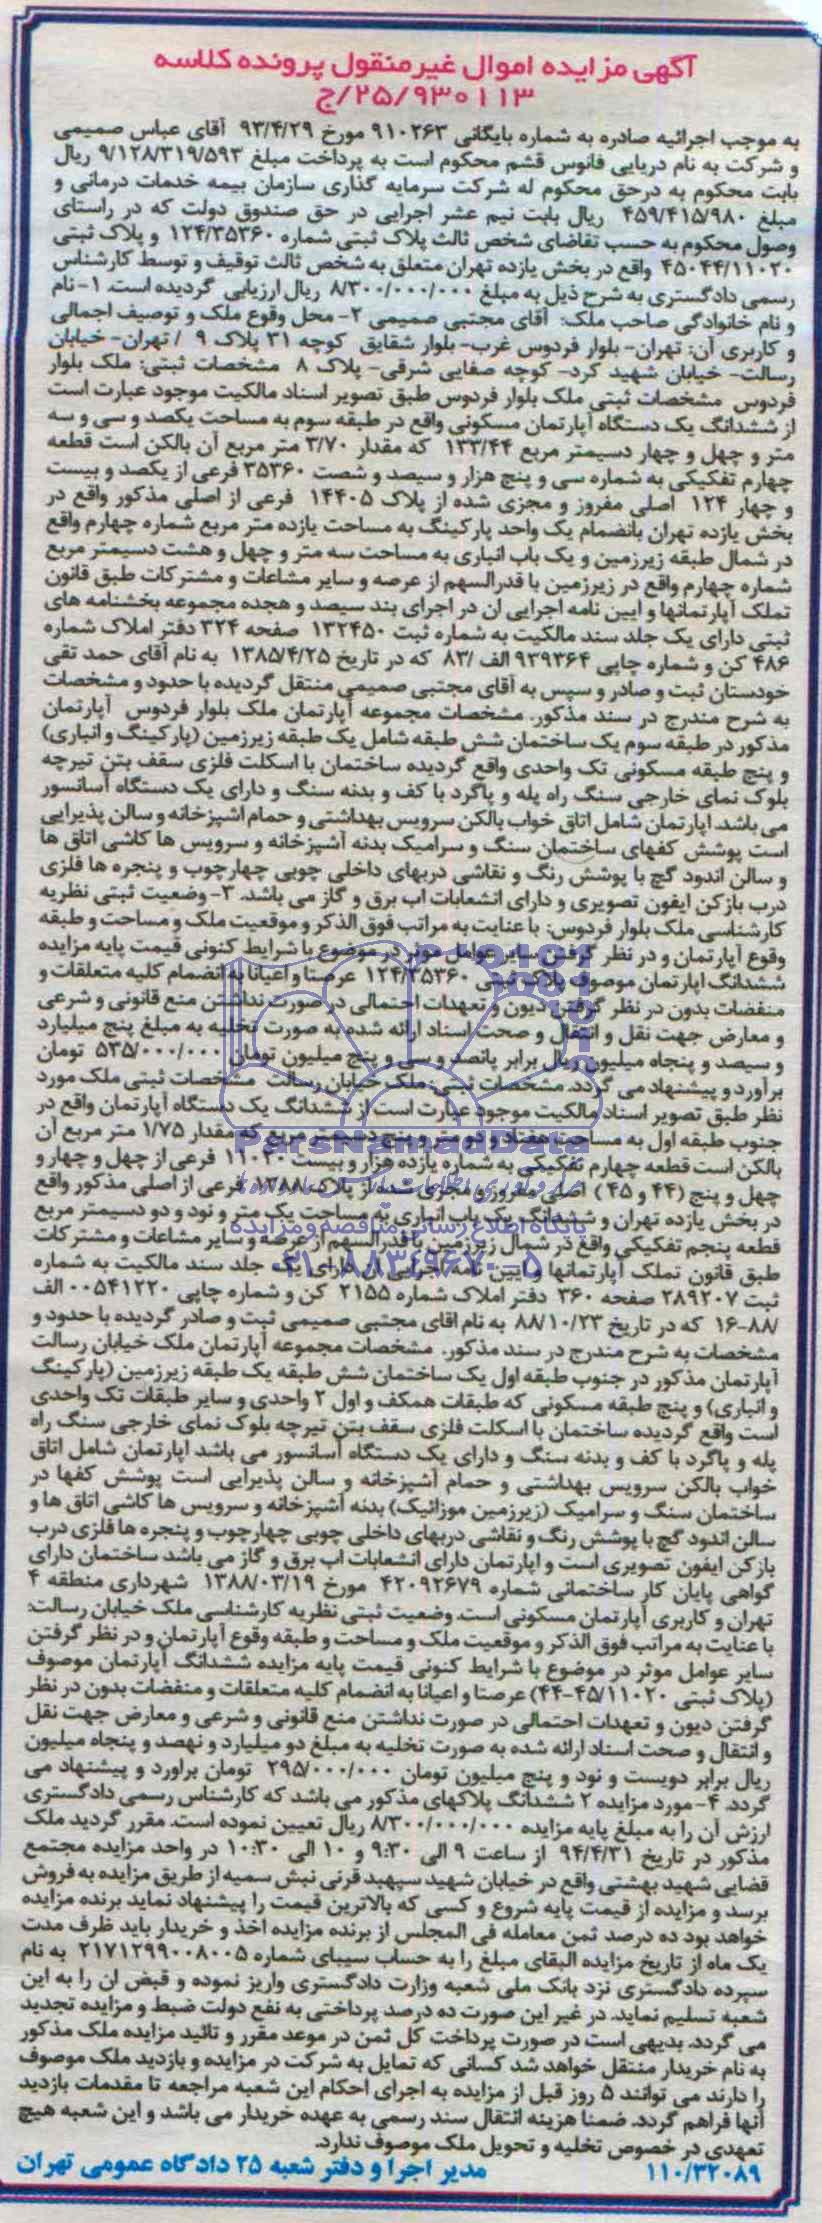 آگهی مزایده اموال غیرمنقول پرونده کلاسه
۲۵/۹۳۰۱۱۳/ج
به موجب اجرائیه صادره به شماره بایگانی ۹۱۰۲۶۳ مورخ ۹۳/۴/۲۹ آقای عباس صمیمی
و شرکت به نام دریایی فانوس قشم محکوم است به پرداخت مبلغ ۹/۱۲۸/۳۱۹/۵۹۳ ریال
بابت محکوم به درحق محکوم له شرکت سرمایه گذاری سازمان بیمه خدمات درمانی و
مبلغ ۴۵۹/۴۱۵/۹۸۰ ریال بابت نیم عشر اجرایی در حق صندوق دولت که در راستای
وصول محکوم به حسب تقاضای شخص ثالث پلاک ثبتی شماره ۱۲۴/۳۵۳۶۰ و پلاک ثبتی
۴۵۰۴۴/۱۱۰۲۰ واقع در بخش یازده تهران متعلق به شخص ثالث توقیف و توسط کارشناس
رسمی دادگستری به شرح ذیل به مبلغ ۸/۳۰۰/۰۰۰/۰۰۰ ریال ارزیابی گردیده است. ۱-نام
و نام خانوادگی صاحب ملک: آقای مجتبی صمیمی ۲- محل وقوع ملک و توصیف اجمالی
و کاربری آن: تهران- بلوار فردوس غرب- بلوار شقایق کوچه ۳۱ پلاک ۹ / تهران- خیابان
رسالت- خیابان شهید کرد- کوچه صفایی شرقی- پلاک ۸ مشخصات ثبتی: ملک بلوار
فردوس مشخصات ثبتی ملک بلوار فردوس طبق تصویر اسناد مالکیت موجود عبارت است
از ششدانگ یک دستگاه آپارتمان مسکونی واقع در طبقه سوم به مساحت یکصد و سی و سه
متر و چهل و چهار دسیمتر مربع ۱۳۳/۴۴ که مقدار ۳/۷۰ متر مربع آن بالکن است قطعه
چهارم تفکیکی به شماره سی و پنج هزار و سیصد و شصت ۳۵۳۶۰ فرعی از یکصد و بیست
و چهار ۱۲۴ اصلی مفروز و مجزی شده از پلاک ۱۴۴۰۵ فرعی از اصلی مذکور واقع در
بخش یازده تهران بانضمام یک واحد پارکینگ به مساحت یازده متر مربع شماره چهارم واقع
در شمال طبقه زیرزمین و یک باب انباری به مساحت سه متر و چهل و هشت دسیمتر مربع
شماره چهارم واقع در زیرزمین با قدرالسهم از عرصه و سایر مشاعات و مشترکات طبق قانون
تملک آپارتمانها و ایین نامه اجرایی ان در اجرای بند سیصد و هجده مجموعه بخشنامه های
ثبتی دارای یک جلد سند مالکیت به شماره ثبت ۱۳۲۴۵۰ صفحه ۳۲۴ دفتر املاک شماره
۴۸۶ کن و شماره چاپی ۹۳۹۳۶۴ الف /۸۳ که در تاریخ ۱۳۸۵/۴/۲۵ به نام آقای حمد تقی
خودستان ثبت و صادر و سپس به آقای مجتبی صمیمی منتقل گردیده با حدود و مشخصات
به شرح مندرج در سند مذکور. مشخصات مجموعه آپارتمان ملک بلوار فردوس آپارتمان
مذکور در طبقه سوم یک ساختمان شش طبقه شامل یک طبقه زیرزمین (پارکینگ و انباری)
و پنج طبقه مسکونی تک واحدی واقع گردیده ساختمان با اسکلت فلزی سقف بتن تیرچه
بلوک نمای خارجی سنگ راه پله و پاگرد با کف و بدنه سنگ و دارای یک دستگاه آسانسور
می باشد. اپارتمان شامل اتاق خواب بالکن سرویس بهداشتی و حمام اشپزخانه و سالن پذیرایی
است پوشش کفهای ساختمان سنگ و سرامیک بدنه آشپزخانه و سرویس ها کاشی اتاق ها
و سالن اندود گچ با پوشش رنگ و نقاشی دربهای داخلی چوبی چهارچوب و پنجره ها فلزی
درب بازکن ایفون تصویری و دارای انشعابات اب برق و گاز می باشد. ۳- وضعیت ثبتی نظریه
کارشناسی ملک بلوار فردوس: با عنایت به مراتب فوق الذکر و موقعیت ملک و مساحت و طبقه
وقوع آپارتمان و در نظر گرفتن سایر عوامل موثر در موضوع با شرایط کنونی قیمت پایه مزایده
ششدانگ اپارتمان موصوف پلاک ثبتی ۱۲۴/۳۵۳۶۰ عرصتا و اعیانا به انضمام کلیه متعلقات و
منفضات بدون در نظر گرفتن دیون و تعهدات احتمالی در صورت نداشتن منع قانونی و شرعی
و معارض جهت نقل و انتقال و صحت اسناد ارائه شده به صورت تخلیه به مبلغ پنج میلیارد
و سیصد و پنجاه میلیون ریال برابر پانصد و سی و پنج میلیون تومان ۵۳۵/۰۰۰/۰۰۰ تومان
برآورد و پیشنهاد می گردد. مشخصات ثبتی: ملک خیابان رسالت مشخصات ثبتی ملک مورد
نظر طبق تصویر اسناد مالکیت موجود عبارت است از ششدانگ یک دستگاه آپارتمان واقع در
جنوب طبقه اول به مساحت هفتاد و دو متر و پنج دسیمتر مربع که مقدار ۱/۷۵ متر مربع آن
بالکن است قطعه چهارم تفکیکی به شماره یازده هزار و بیست ۱۱۰۲۰ فرعی از چهل و چهار و
چهل و پنج (۴۴ و ۴۵) اصلی مفروز و مجزی شده از پلاک ۱۲۸۸ فرعی از اصلی مذکور واقع
در بخش یازده تهران و ششدانگ یک باب انباری به مساحت یک متر و نود و دو دسیمتر مربع
قطعه پنجم تفکیکی واقع در شمال زیرزمین با قدرالسهم از عرصه و سایر مشاعات و مشترکات
طبق قانون تملک آپارتمانها و ایین نامه اجرایی ان دارای یک جلد سند مالکیت به شماره
ثبت ۲۸۹۲۰۷ صفحه ۳۶۰ دفتر املاک شماره ۲۱۵۵ کن و شماره چاپی ۰۰۵۴۱۲۲۰ الف
/۸۸-۱۶ که در تاریخ ۸۸/۱۰/۲۳ به نام اقای مجتبی صمیمی ثبت و صادر گردیده با حدود و
مشخصات به شرح مندرج در سند مذکور. مشخصات مجموعه آپارتمان ملک خیابان رسالت
آپارتمان مذکور در جنوب طبقه اول یک ساختمان شش طبقه یک طبقه زیرزمین (پارکینگ
و انباری) و پنج طبقه مسکونی که طبقات همکف و اول ۲ واحدی و سایر طبقات تک واحدی
است واقع گردیده ساختمان با اسکلت فلزی سقف بتن تیرچه بلوک نمای خارجی سنگ راه
پله و پاگرد با کف و بدنه سنگ و دارای یک دستگاه آسانسور می باشد اپارتمان شامل اتاق
خواب بالکن سرویس بهداشتی و حمام آشپزخانه و سالن پذیرایی است پوشش کفها در
ساختمان سنگ و سرامیک (زیرزمین موزائیک) بدنه آشپزخانه و سرویس ها کاشی اتاق ها و
سالن اندود گچ با پوشش رنگ و نقاشی دربهای داخلی چوبی چهارچوب و پنجره ها فلزی درب
بازکن ایفون تصویری است و اپارتمان دارای انشعابات اب برق و گاز می باشد ساختمان دارای
گواهی پایان کار ساختمانی شماره ۴۲۰۹۲۶۷۹ مورخ ۱۳۸۸/۰۳/۱۹ شهرداری منطقه ۴
تهران و کاربری آپارتمان مسکونی است. وضعیت ثبتی نظریه کارشناسی ملک خیابان رسالت:
با عنایت به مراتب فوق الذکر و موقعیت ملک و مساحت و طبقه وقوع آپارتمان و در نظر گرفتن
سایر عوامل موثر در موضوع با شرایط کنونی قیمت پایه مزایده ششدانگ آپارتمان موصوف
(پلاک ثبتی ۴۵/۱۱۰۲۰-۴۴) عرصتا و اعیانا به انضمام کلیه متعلقات و منفضات بدون در نظر
گرفتن دیون و تعهدات احتمالی در صورت نداشتن منع قانونی و شرعی و معارض جهت نقل
و انتقال و صحت اسناد ارائه شده به صورت تخلیه به مبلغ دو میلیارد و نهصد و پنجاه میلیون
ریال برابر دویست و نود و پنج میلیون تومان ۲۹۵/۰۰۰/۰۰۰ تومان براورد و پیشنهاد می
گردد. ۴- مورد مزایده ۲ ششدانگ پلاکهای مذکور می باشد که کارشناس رسمی دادگستری
ارزش آن را به مبلغ پایه مزایده ۸/۳۰۰/۰۰۰/۰۰۰ ریال تعیین نموده است. مقرر گردید ملک
مذکور در تاریخ ۹۴/۴/۳۱ از ساعت ۹ الی ۹:۳۰ و ۱۰ الی ۱۰:۳۰ در واحد مزایده مجتمع
قضایی شهید بهشتی واقع در خیابان شهید سپهبد قرنی نبش سمیه از طریق مزایده به فروش
برسد و مزایده از قیمت پایه شروع و کسی که بالاترین قیمت را پیشنهاد نماید برنده مزایده
خواهد بود ده درصد ثمن معامله فی المجلس از برنده مزایده اخذ و خریدار باید ظرف مدت
یک ماه از تاریخ مزایده البقای مبلغ را به حساب سیبای شماره ۲۱۷۱۲۹۹۰۰۸۰۰۵ به نام
سپرده دادگستری نزد بانک ملی شعبه وزارت دادگستری واریز نموده و قبض ان را به این
شعبه تسلیم نماید. در غیر این صورت ده درصد پرداختی به نفع دولت ضبط و مزایده تجدید
می گردد. بدیهی است در صورت پرداخت کل ثمن در موعد مقرر و تائید مزایده ملک مذکور
به نام خریدار منتقل خواهد شد کسانی که تمایل به شرکت در مزایده و بازدید ملک موصوف
را دارند می توانند ۵ روز قبل از مزایده به اجرای احکام این شعبه مراجعه تا مقدمات بازدید
آنها فراهم گردد. ضمنا هزینه انتقال سند رسمی به عهده خریدار می باشد و این شعبه هیچ
تعهدی در خصوص تخلیه و تحویل ملک موصوف ندارد.
۱۱۰/۳۲۰۸۹ مدیر اجرا و دفتر شعبه ۲۵ دادگاه عمومی تهران
ParsNamadData
پایگاه اطلاع رسانی مناقصه و مزایده
۰۲۱-۸۸۳۴۹۶۷۰-۵